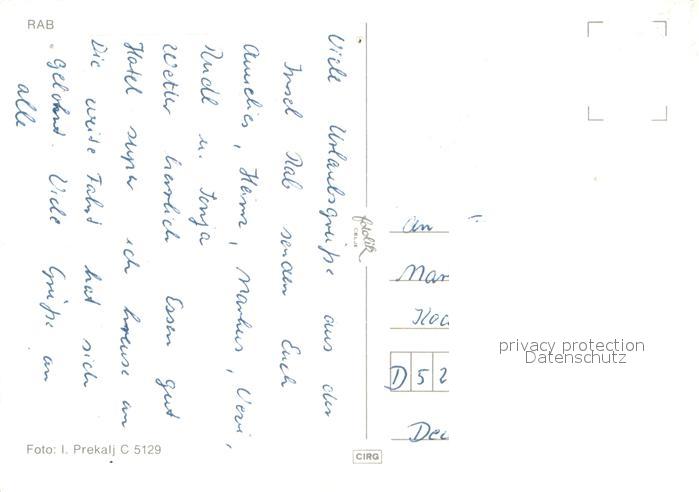 RAB
Viele Urlaubsgrüße aus der
Insel Rab senden Euch
Annelies, Heinz, Markus, Vevi,
Rudl u. Sonja
Wetter herrlich Essen gut
Hotel super ich brause an
Die weite Fahrt hat sich
gelohnt. Viele Grüße an
alle
Foto: I. Prekalj C 5129
CIRG
An
Mar
D 5 2
privacy protection
Datenschutz